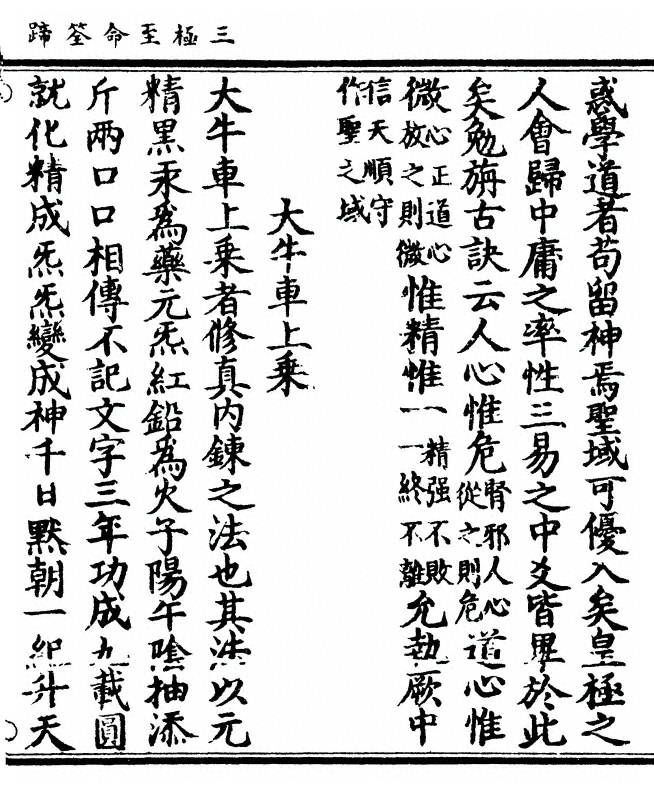 三極至命筌蹄
惑學道者苟留神焉聖域可優入矣皇極之
人會歸中庸之率性三易之中爻皆畢於此
矣勉旃古訣云人心惟危腎邪人心從之則危道心惟
微心正道心放之則微惟精惟一精强不敗一終不離允執厥中
信天順守作聖之域
大牛車上乘
大牛車上乘者修真内鍊之法也其法以元
精黑汞為藥元炁紅鉛為火子陽午陰抽添
斤兩口口相傳不記文字三年功成九載圓
就化精成炁炁變成神千日默朝一紀升天